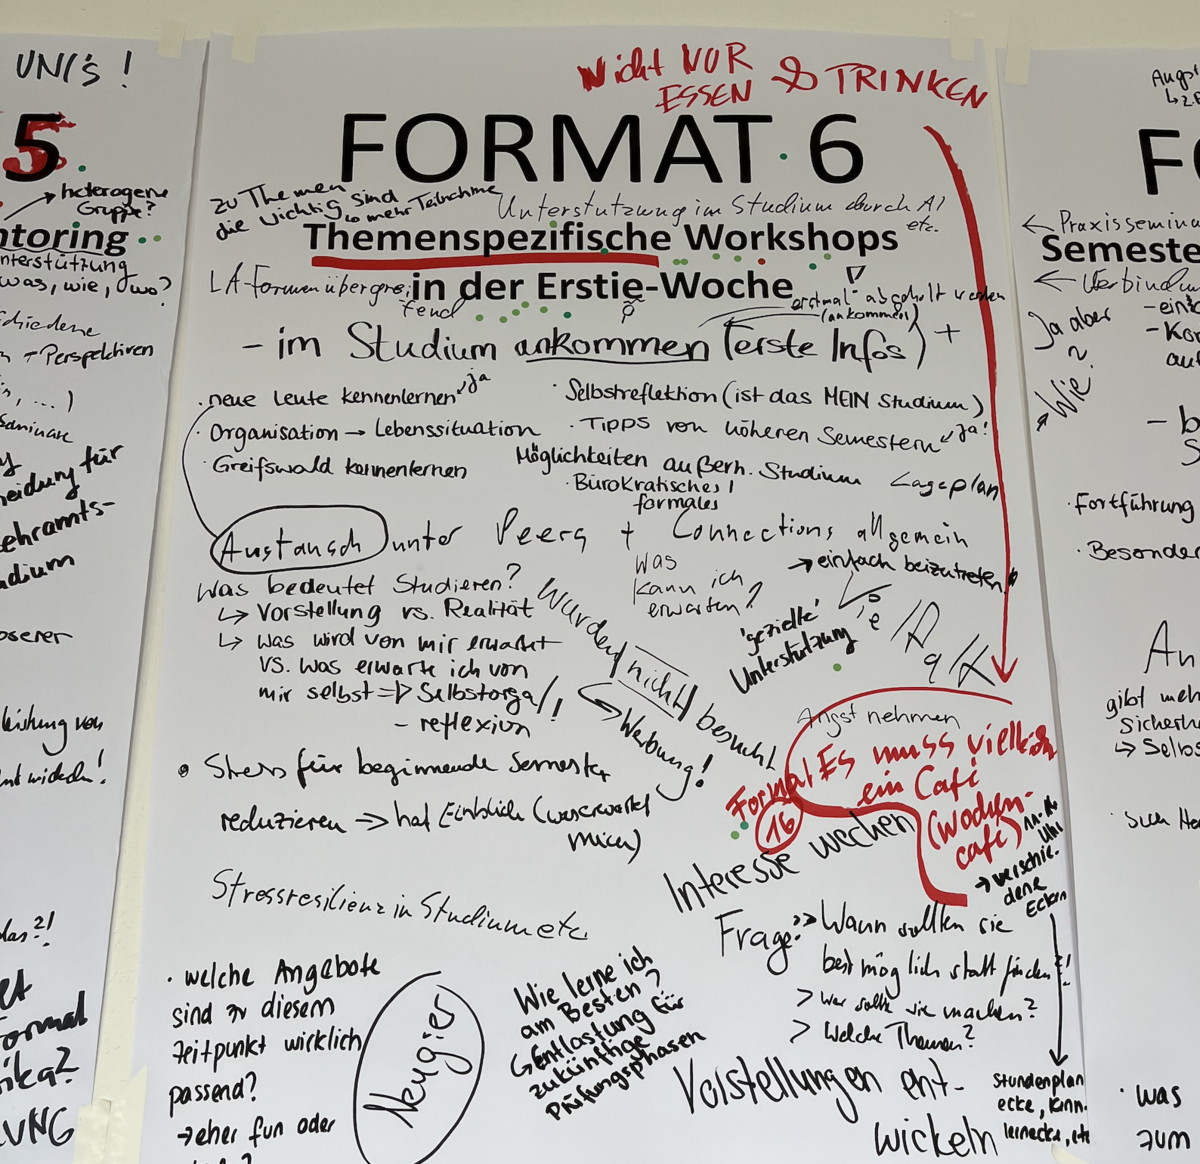 UNI'S !
5
heterogene
Gruppe?
ntoring
nterstützung
was, wie, wo?
schiedene
+ Perspektiven
, ...)
seminare
heidung für
ehramts-
udium
oserer
leistung von
nt wickeln!
das?!
et
Format
VUNG
Nicht NUR
ESSEN & TRINKEN
FORMAT 6
zu Themen
die wichtig sind
↳ mehr Teilnahme
Unterstützung im Studium durch AI
etc.
Themenspezifische Workshops
LA-Formen übergrei-
fend
in der Erstie-Woche
"erstmal" abgeholt werden
(ankommen)
- im Studium ankommen (erste Infos) +
· neue Leute kennenlernen
ja
· Organisation → Lebenssituation
· Greifswald kennenlernen
· Selbstreflektion (ist das MEIN Studium)
· TIPPS von höheren Semestern
ja!
Möglichkeiten außerh. Studium
Lageplan
· Bürokratisches /
formales
Austausch unter Peers + Connections allgemein
Was bedeutet Studieren?
↳ Vorstellung vs. Realität
↳ was wird von mir erwartet
vs. was erwarte ich von
mir selbst => Selbstorga/!
- reflexion
was
kann ich
erwarten?
→ einfach beizutreten
'gezielte'
Unterstützung
Wurden nicht besucht
Werbung!
• Stress für beginnende Semester
reduzieren → hat Einblick (was erwartet
mich)
Angst nehmen
Format
16
Es muss vielleicht
ein Café
(Wochen-
café)
Uni
→ verschie-
dene
Ecken
Stundenplan
ecke, Kenn-
lernecke, etc
Interesse wecken
Stressresilienz im Studium etc.
Frage: >> Wann sollten sie
best möglich stattfinden?!
> Wer sollte sie machen?
> Welche Themen?
· welche Angebote
sind zu diesem
Zeitpunkt wirklich
passend?
→ eher fun oder
Neugier
Wie lerne ich
am Besten?
↳ Entlastung für
zukünftige
Prüfungsphasen
Vorstellungen ent-
wickeln
Angst
F
← Praxissemina
Semeste
← Verbindun
Ja aber
Wie?
- Ko
auf
- b
S
· Fortführung
· Besonder
An
gibt meh
Sicherh
→ Selbs
· was
zum